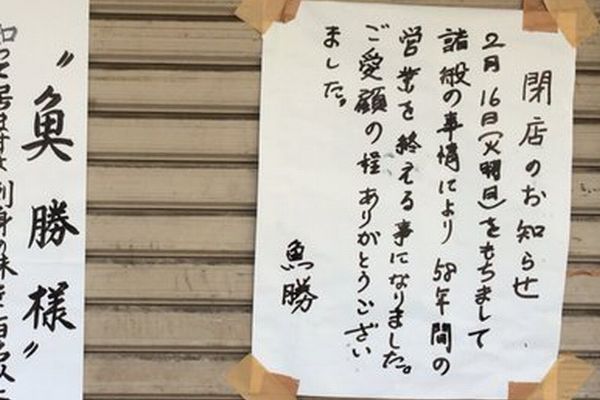 閉店のお知らせ
2月16日(火曜日)をもちまして
諸般の事情により58年間の
営業を終える事になりました。
ご愛顧の程ありがとうござい
ました。
魚勝
〝魚勝様〟
知って居ますよ刺身の味